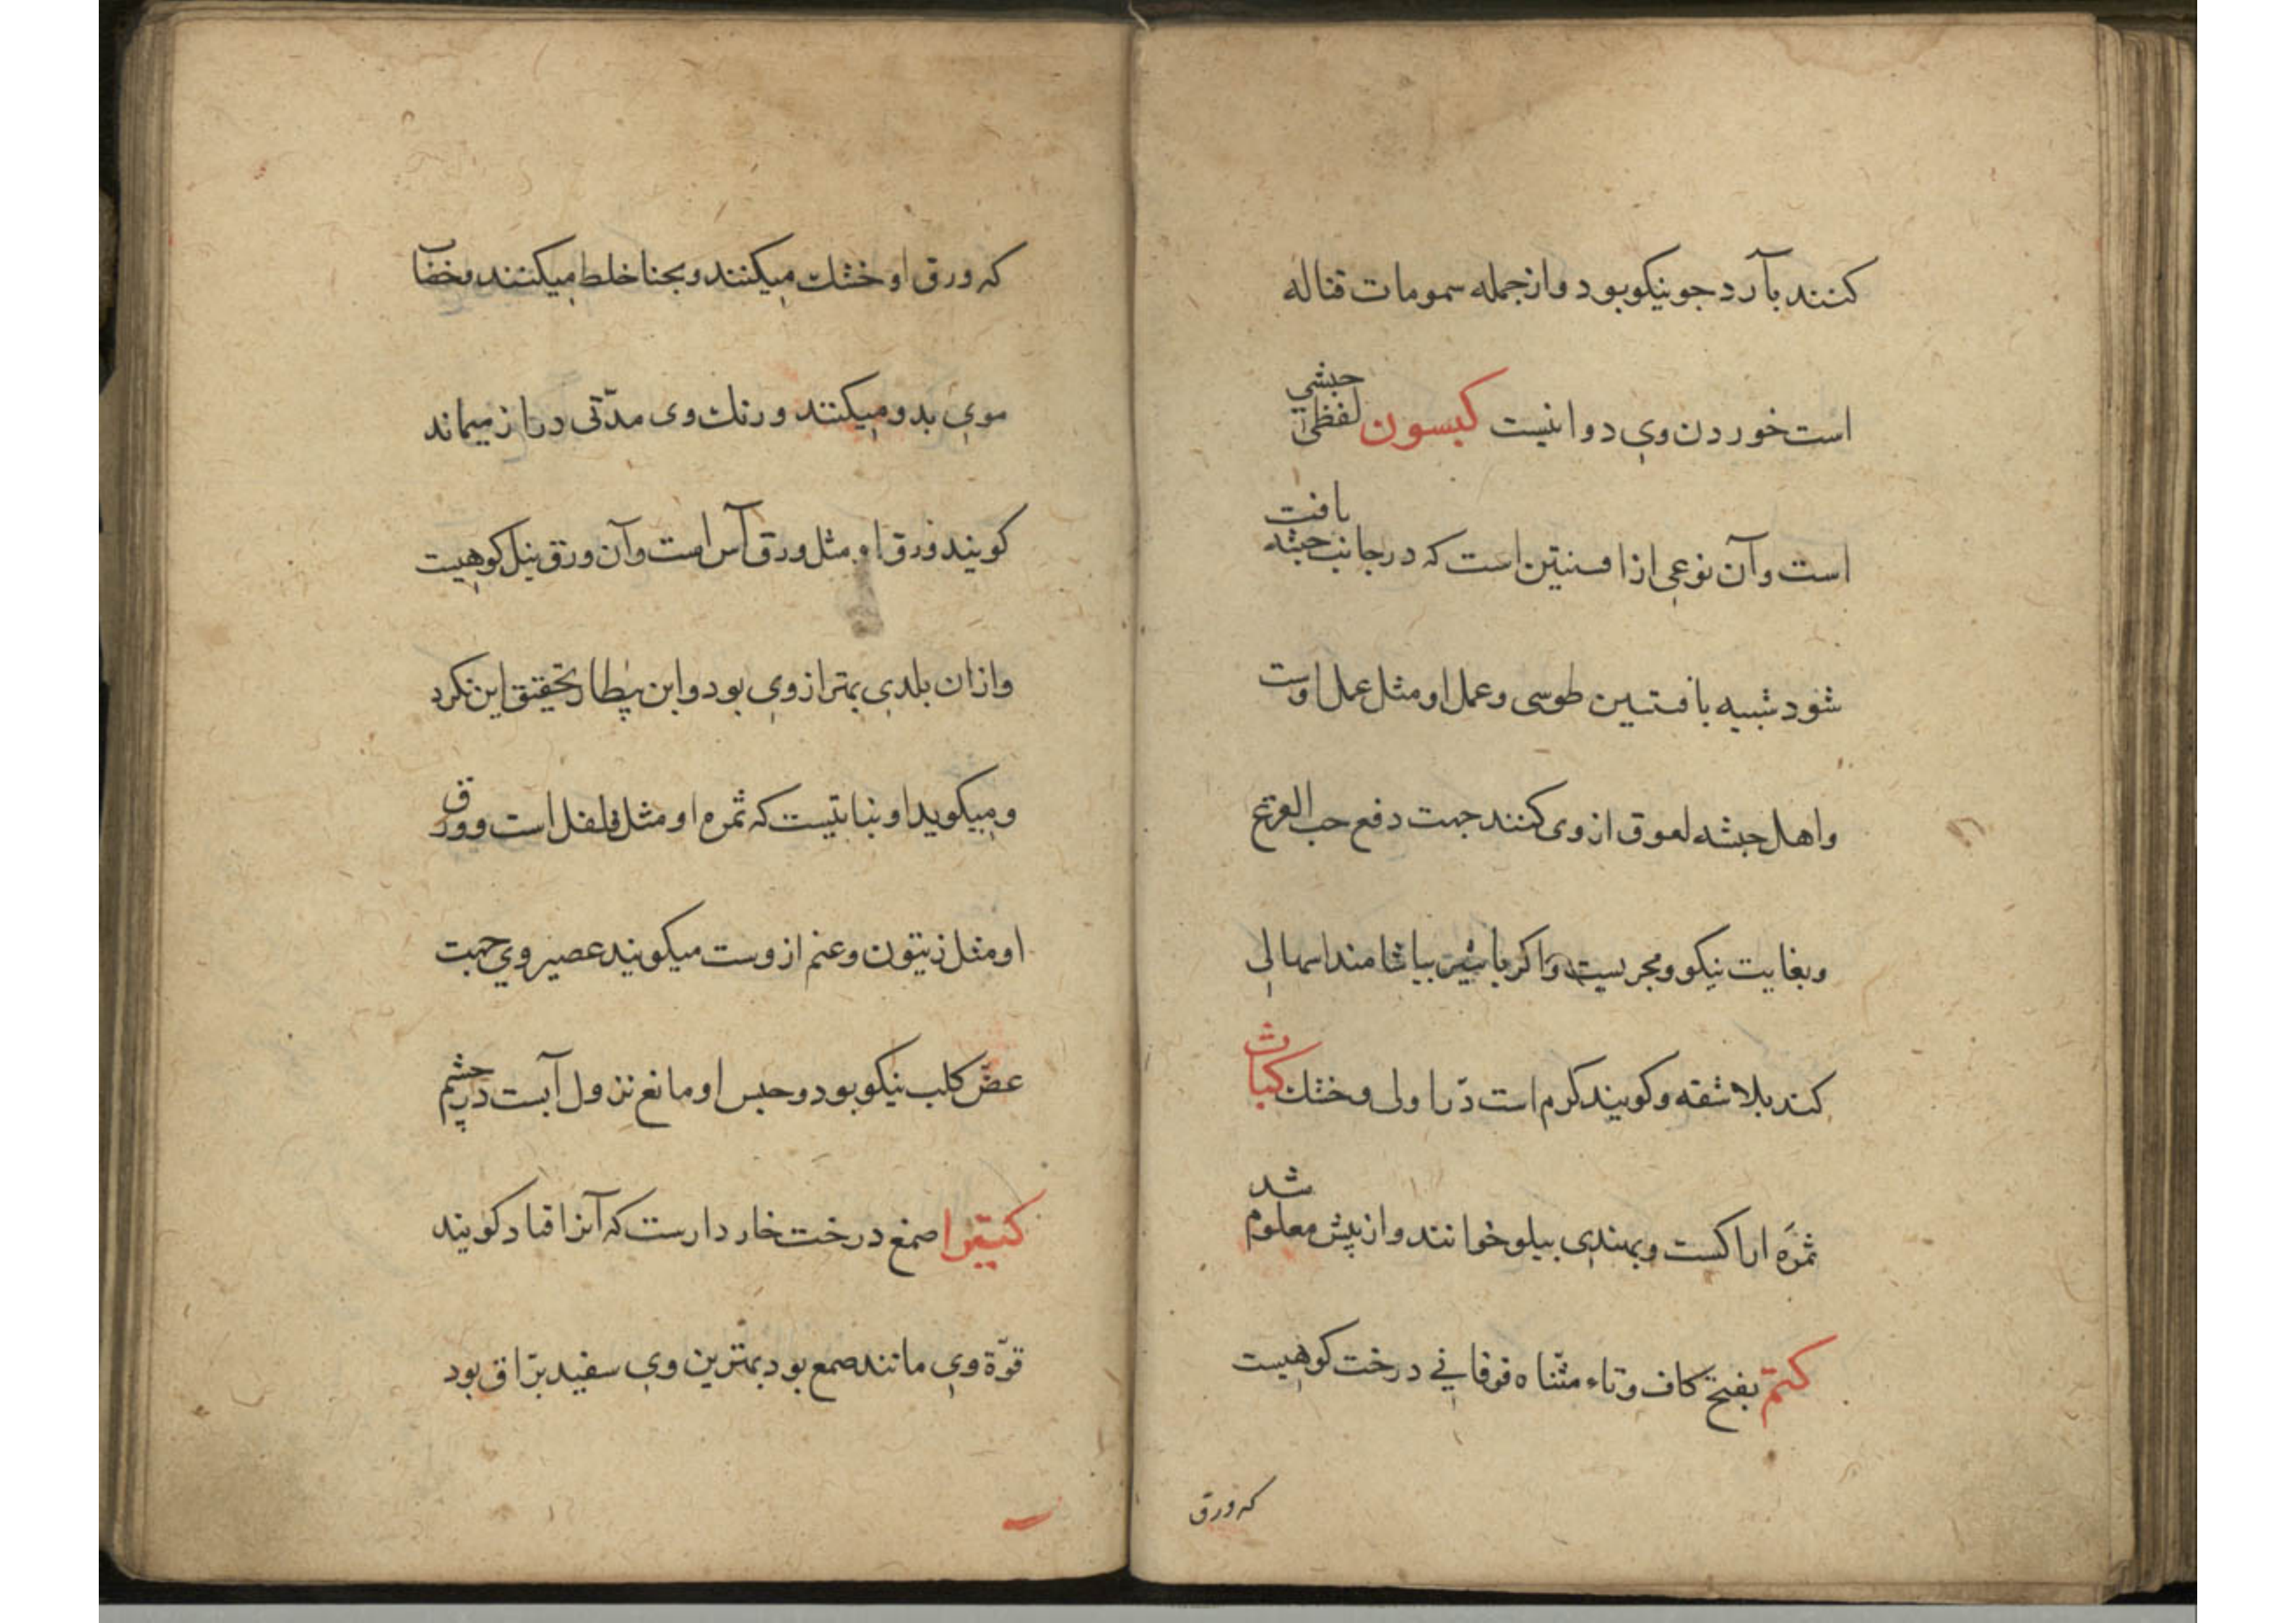 کنند بآرد جو نیکو بود و از جمله سمومات قتاله
است خوردن وی دوا نیست کبسون لفظی حبشی
است و آن نوعی از افسنتین است که در جانب حبشه یافت
شود شبیه بافسنتین طوسی و عمل او مثل عمل اوست
و اهل حبشه لعوق از وی کنند جهت دفع حب القرع
و بغایت نیکو و مجربست و اگر با شیر بیاشامند اسهالی
کند بلا شقه و کویند کرم است در اولی و خشك کباث
ثمره اراکست و بهندی بیلو خوانند و از پیش معلوم شد
کتم بفتح کاف و تاء مثناه فوقانی درخت کوهیست
که ورق
که ورق او خشك میکنند و بحنا خلط میکنند و خضاب
موی بدو میکنند و رنك وی مدّتی دراز میماند
کویند ورق او مثل ورق آس است و آن ورق نیل کوهیست
و ازان بلدی بهتر از وی بود و ابن بیطار تحقیق این نکرد
و میکوید او نباتیست که ثمره او مثل فلفل است و ورق
او مثل زیتون و عنم ازوست میکویند عصیر وی جهت
عضّ کلب نیکو بود و حبس او مانع نزول آبست در چشم
کتیرا صمغ درخت خار دارست که آنرا قتاد کویند
قوّة وی مانند صمغ بود بهترین وی سفید برّاق بود